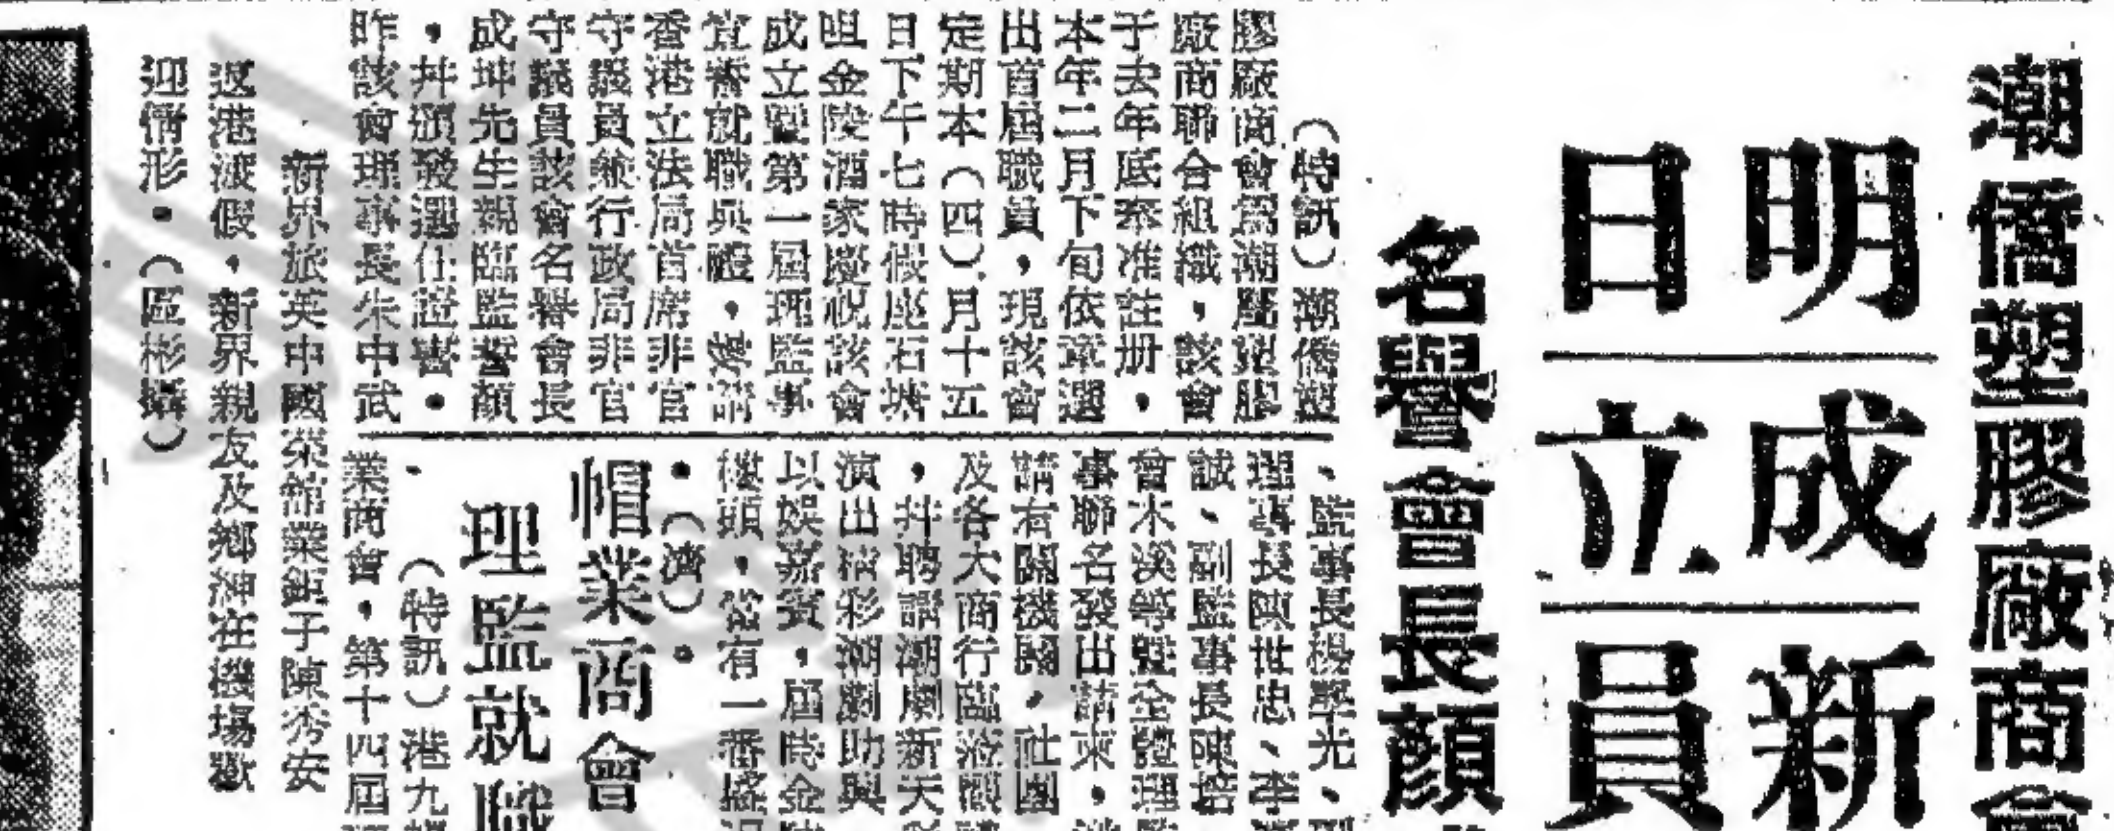 潮僑塑膠廠商會
明日
成立
新員
名譽會長顏
（特訊）潮僑塑
膠廠商會為潮屬塑膠
廠商聯合組織，該會
于去年底奉准註册，
本年二月下旬依章選
出首屆職員，現該會
定期本（四）月十五
日下午七時假座石塘
咀金陵酒家慶祝該會
成立暨第一屆理監事
宣誓就職典禮，
香港立法局首席非官
守議員兼行政局非官
守議員該會名譽會長
成坤先生親臨監誓顏
，并頒發選任證書。
昨該會理事長朱中武
、監事長楊
理事長陳世忠、李
誠、副監事長陳
曾木溪等暨全體理監
事聯名發出請柬，
請有關機關，社團
及各大商行臨
，并聘請潮劇新天彩
演出精彩潮劇助興
以娛嘉賓，屆時金陵
樓頭，當有一番盛況
。（濟）。
帽業商會
理監就職
（特訊）港九
業商會，第十四屆
新界旅英中國菜館業鉅子陳秀安
返港渡假，新界親友及鄉紳在機塲歡
迎情形。（區彬攝）